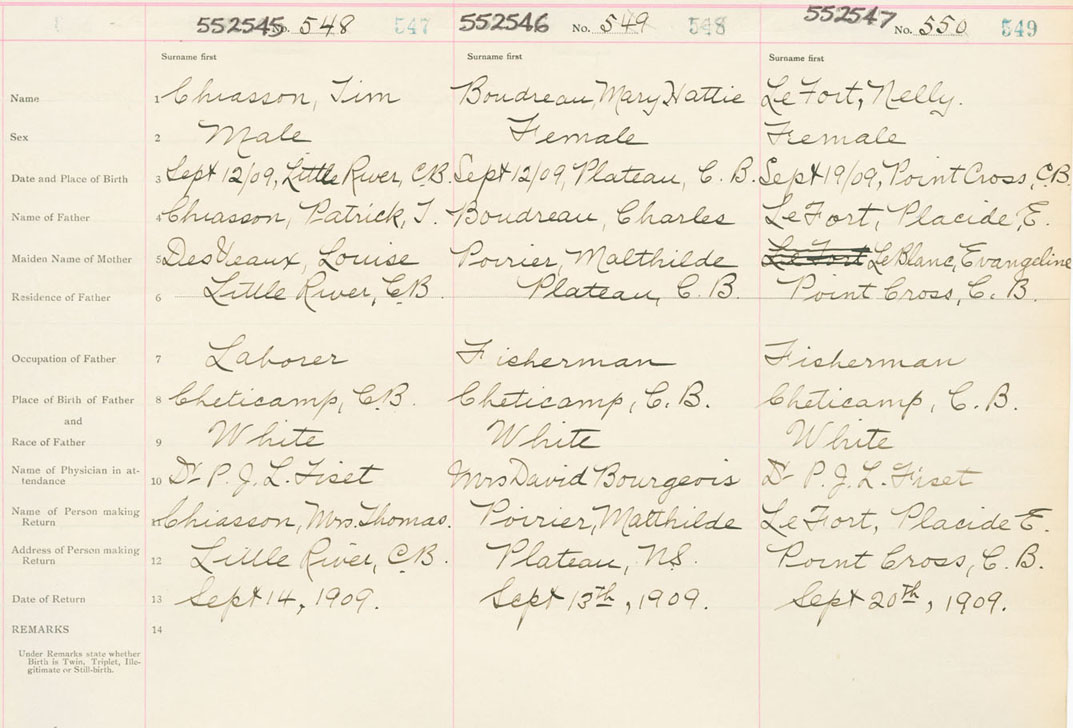 552545 No. 548 547 552546 No. 549 548 552547 No. 550 549
Surname first Surname first Surname first
Name 1 Chiasson, Tim Boudreau, Mary Hattie LeFort, Nelly.
Sex 2 Male Female Female
Date and Place of Birth 3 Sept 12/09, Little River, C.B. Sept 12/09, Plateau, C. B. Sept 19/09, Point Cross, C.B.
Name of Father 4 Chiasson, Patrick, T. Boudreau, Charles LeFort, Placide, E.
Maiden Name of Mother 5 DesVeaux, Louise Poirier, Malthilde LeFort LeBlanc, Evangeline
Residence of Father 6 Little River, C.B. Plateau, C. B. Point Cross, C. B.
Occupation of Father 7 Laborer Fisherman Fisherman
Place of Birth of Father 8 Cheticamp, C.B. Cheticamp, C. B. Cheticamp, C. B.
and
Race of Father 9 White White White
Name of Physician in at-
tendance 10 Dr P. J. L. Fiset Mrs David Bourgeois Dr P. J. L. Fiset
Name of Person making
Return 11 Chiasson, Mrs. Thomas. Poirier, Malthilde LeFort, Placide E.
Address of Person making
Return 12 Little River, C.B. Plateau, N.S. Point Cross, C. B.
Date of Return 13 Sept 14, 1909. Sept 13th, 1909. Sept 20th, 1909.
REMARKS 14
Under Remarks state whether
Birth is Twin, Triplet, Ille-
gitimate or Still-birth.